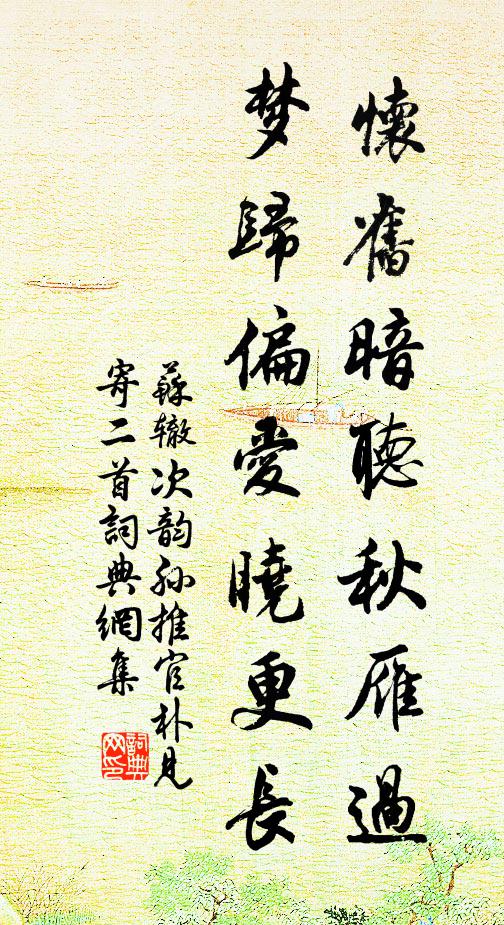 懷舊暗聽秋雁過
梦歸偏愛曉更長
蘇辙次韵孙推官朴見
寄二首詞典網集
詞典
网印